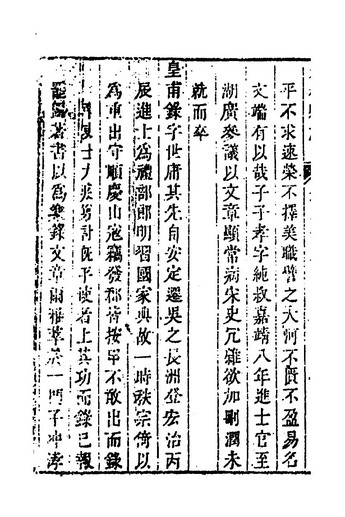 平不求速榮不擇美職譬之大河不贾不盈易名
文端有以哉子子孝字純叔嘉靖八年進士官至
湖廣參議以文章顯常病宋史冗雜欲加刪潤未
就而卒
皇甫錄字世庸其先自安定遷吳之長洲登弘治丙
辰進士為禮部郎明習國家典故一時秩宗倚以
為重出守順慶山冦竊發郡皆按군不敢出而錄
士大破勇計既平使者上其功而錄已報
罷歸著書以為樂錄文章爾雅萃於一門子冲涍